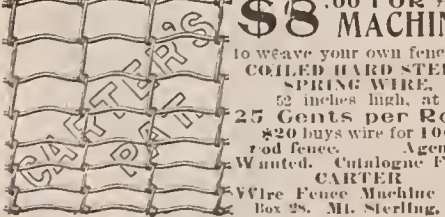 CARTER'S
PAT.
$8.00 FOR
MACHIN
to weave your own fenc
COILED HARD STE
SPRING WIRE,
52 inches high, at
25 Cents per Ro
$20 buys wire for 100
rod fence. Agen
Wanted. Catalogue F
CARTER
Wire Fence Machine
Box 28. Mt. Sterling,